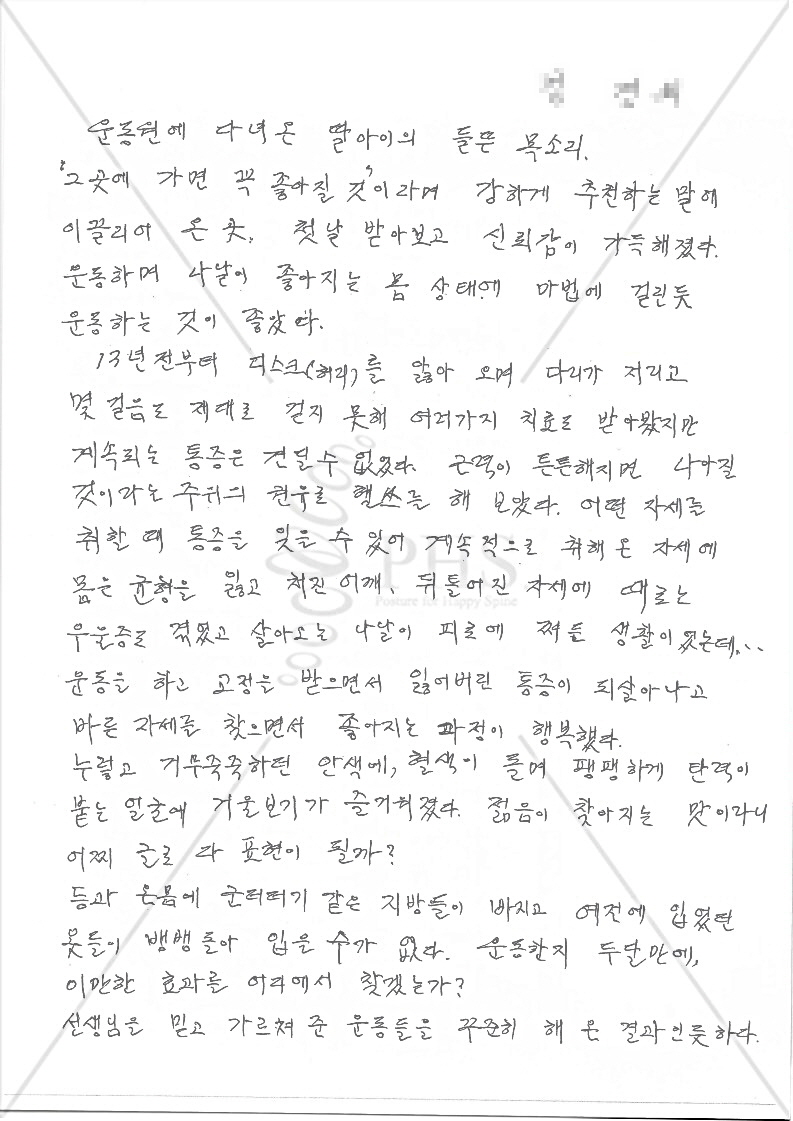 운동원에 다녀온 딸아이의 들뜬 목소리.
"그곳에 가면 꼭 좋아질 것"이라며 강하게 추천하는 말에
이끌리어 온 곳. 첫날 받아보고 신뢰감이 가득해졌다.
운동하며 나날이 좋아지는 몸 상태에 마법에 걸린듯
운동하는 것이 좋았다.
13년전부터 디스크(허리)를 앓아 오며 다리가 저리고
몇 걸음도 제대로 걷지 못해 여러가지 치료로 받아봤지만
계속되는 통증은 견딜 수 없었다. 근력이 튼튼해지면 나아질
것이라는 주위의 권유로 헬쓰를 해 보았다. 어떤 자세를
취할 때 통증을 잊을 수 있어 계속적으로 취해 온 자세에
몸은 균형을 잃고 처진 어깨, 뒤틀어진 자세에 때로는
우울증로 겪었고 살아오는 나날이 피로에 쩌든 생활이었는데...
운동을 하고 교정을 받으면서 잃어버린 통증이 되살아나고
바른 자세를 찾으면서 좋아지는 과정이 행복했다.
누렇고 거무죽죽하던 안색에, 혈색이 돌며 팽팽하게 탄력이
붙는 얼굴에 거울보기가 즐거워졌다. 젊음이 찾아지는 맛이라니
어찌 글로 다 표현이 될까?
등과 온몸에 군더더기 같은 지방들이 빠지고 예전에 입었던
옷들이 뱅뱅돌아 입을 수가 없다. 운동한지 두달만에,
이만한 효과를 어디에서 찾겠는가?
선생님을 믿고 가르쳐 준 운동들을 꾸준히 해 온 결과인듯하다.
PHS
Posture for Happy Spine